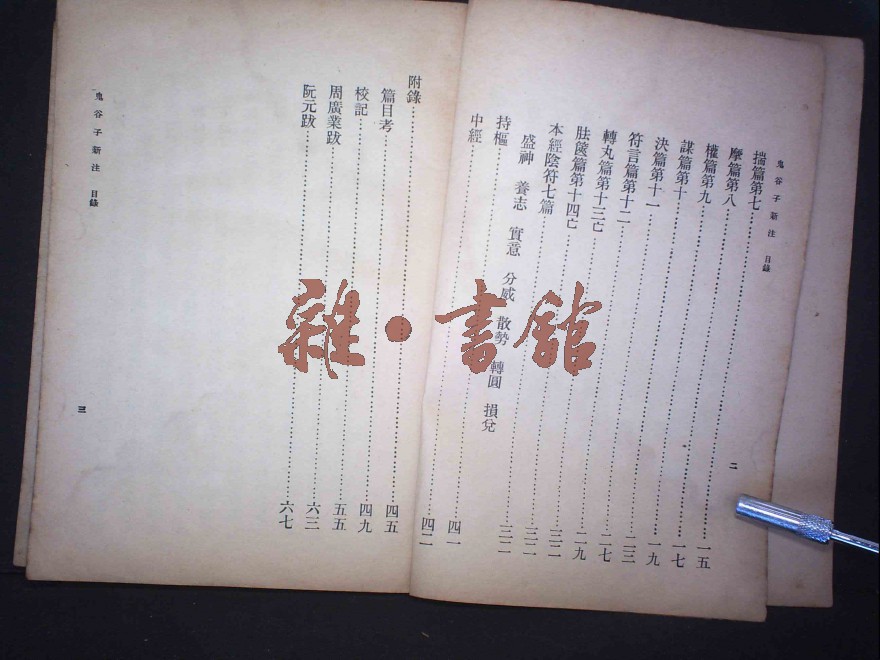 鬼谷子新注 目錄
揣篇第七……一五
摩篇第八……一七
權篇第九……一九
謀篇第十……二三
決篇第十一……二七
符言篇第十二……二九
轉丸篇第十三亡……三二
胠篋篇第十四亡……三二
本經陰符七篇……三二
盛神 養志 實意 分威 散勢 轉圓 損兌
持樞……四一
中經……四二
二
附錄……四五
篇目考……四九
校記……五五
周廣業跋……六三
阮元跋……六七
鬼谷子新注 目錄
三
雜·書館